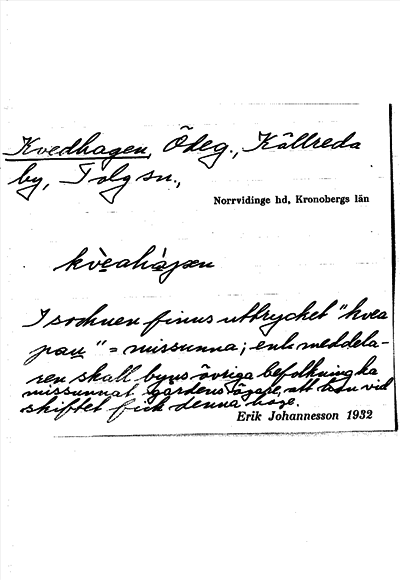 Kvedhagen, Ödeg., Källreda
by, Tolg sn.,
Norrvidinge hd, Kronobergs län
kvèahàgen
I socknen finns uttrycket "kvea
på" = missunna; enl. meddela-
ren skall byns övriga befolkning ha
missunnat gårdens ägare, att han vid
skiftet fick denna hage.
Erik Johannesson 1932